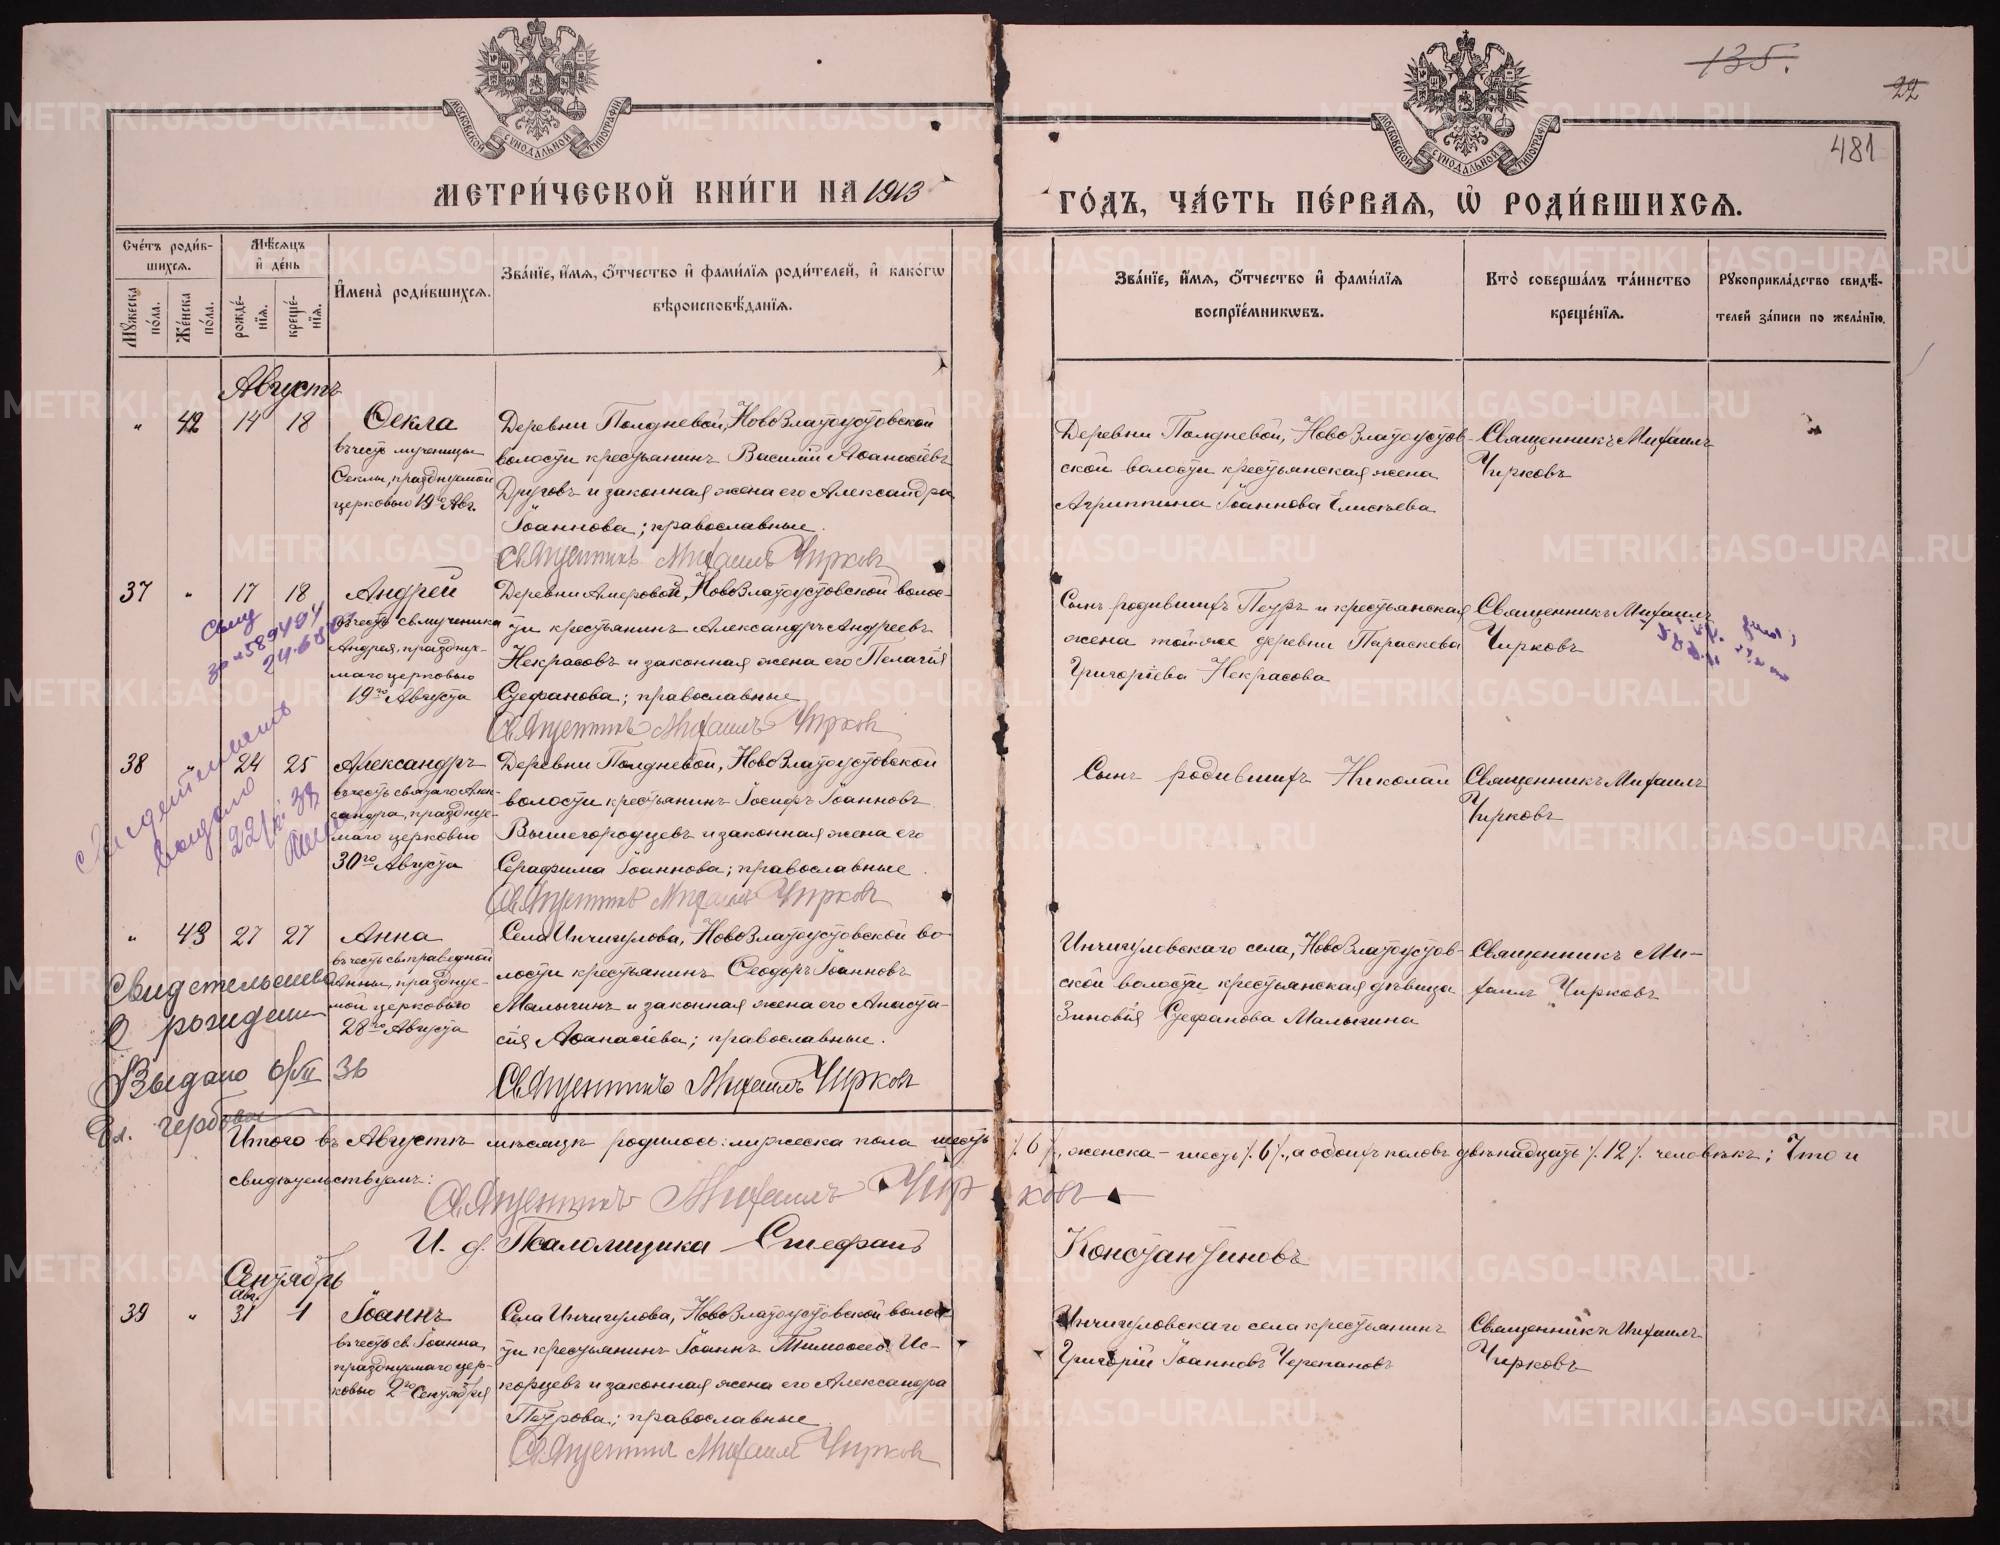 135.
22
481
МОСКОВСКОЙ СѴНОДАЛЬНОЙ ТИПОГРАФІИ
МОСКОВСКОЙ СѴНОДАЛЬНОЙ ТИПОГРАФІИ
МЕТРИ́ЧЕСКОЙ КНИ́ГИ НА 1913 ГО́ДЪ, ЧА́СТЬ ПЕ́РВАѦ, Ѡ҆ РОДИ́ВШИХСѦ.
Сче́тъ роди́вшихсѧ.
Мꙋжеска по́ла.
Же́нска по́ла.
Мѣ́сѧцъ и҆ де́нь
рожде́нїѧ.
креще́нїѧ.
И҆мена̀ роди́вшихсѧ.
Зва́нїе, и҆́мѧ, ѻ҆́тчество и҆ фами́лїѧ роди́телей, и҆ како́гѡ вѣроисповѣ́данїѧ.
Зва́нїе, и҆́мѧ, ѻ҆́тчество и҆ фами́лїѧ воспрїе́мникѡвъ.
Кто̀ соверша́лъ та́инство креще́нїѧ.
Рꙋкоприкла́дство свидѣ́телей за́писи по жела́нїю.
Августъ
" 42 14 18
Ѳекла
въ честь мученицы
Ѳеклы, празднуемой
церковью 19го Авг.
Деревни Полдневой, Ново Златоустовской
волости крестьянинъ Василій Аѳанасіевъ
Друговъ и законная жена его Александра
Іоаннова; православные.
Священникъ Михаилъ Чирковъ
Деревни Полдневой, Ново Златоустов-
ской волости крестьянская жена
Агриппина Іоаннова Елисѣева
Священникъ Михаилъ
Чирковъ
37 " 17 18
Андрей
въ честь св. мученика
Андрея, праздну-
маго церковью
19го Августа
Деревни Амеровой, Ново Златоустовской волос-
ти крестьянинъ Александръ Андреевъ
Некрасовъ и законная жена его Пелагія
Стефанова; православные
Священникъ Михаилъ Чирковъ
Сынъ родившихъ Петръ и крестьянская
жена той же деревни Параскева
Григоріева Некрасова
Священникъ Михаилъ
Чирковъ
38 " 24 25
Александръ
въ честь святаго Алек-
сандра, праздну-
маго церковью
30го Августа
Деревни Полдневой, Ново Златоустовской
волости крестьянинъ Іосифъ Іоанновъ
Вышегородцевъ и законная жена его
Серафима Іоаннова; православные.
Священникъ Михаилъ Чирковъ
Сынъ родившихъ Николай
Священникъ Михаилъ
Чирковъ
выдано
" 43 27 27
Анна
въ честь св. праведной
Анны, праздну-
мой церковью
28го Августа
Села Ичигулова, Ново Златоустовской во-
лости крестьянинъ Ѳеодоръ Іоанновъ
Малыгинъ и законная жена его Анаста-
сія Аѳанасіева; православные.
Священникъ Михаилъ Чирковъ
Ичигуловскаго села, Ново Златоустов-
ской волости крестьянская дѣвица
Зиновія Стефанова Малыгина
Священникъ Ми-
хаилъ Чирковъ
Свидетельство
О рождении
Выдано 6/VII 36
Итого въ Августѣ мѣсяцѣ родилось: мужеска пола шесть /.6/., женска - шесть /.6/., а обоихъ половъ двѣнадцать /.12/. человѣкъ; Что и
свидѣтельствуемъ:
Священникъ Михаилъ Чирковъ
И. д. Псаломщика Стефанъ Константиновъ
Сентябрь
Авг.
39 " 31 1
Іоаннъ
въ честь св. Іоанна,
празднуемаго цер-
ковью 2го Сентября
Села Ичигулова, Ново Златоустовской волос-
ти крестьянинъ Іоаннъ Тимоѳеевъ Ис-
корцевъ и законная жена его Александра
Петрова; православные
Священникъ Михаилъ Чирковъ
Ичигуловскаго села крестьянинъ
Григорій Іоанновъ Черепановъ
Священникъ Михаилъ
Чирковъ
METRIKI.GASO-URAL.RU